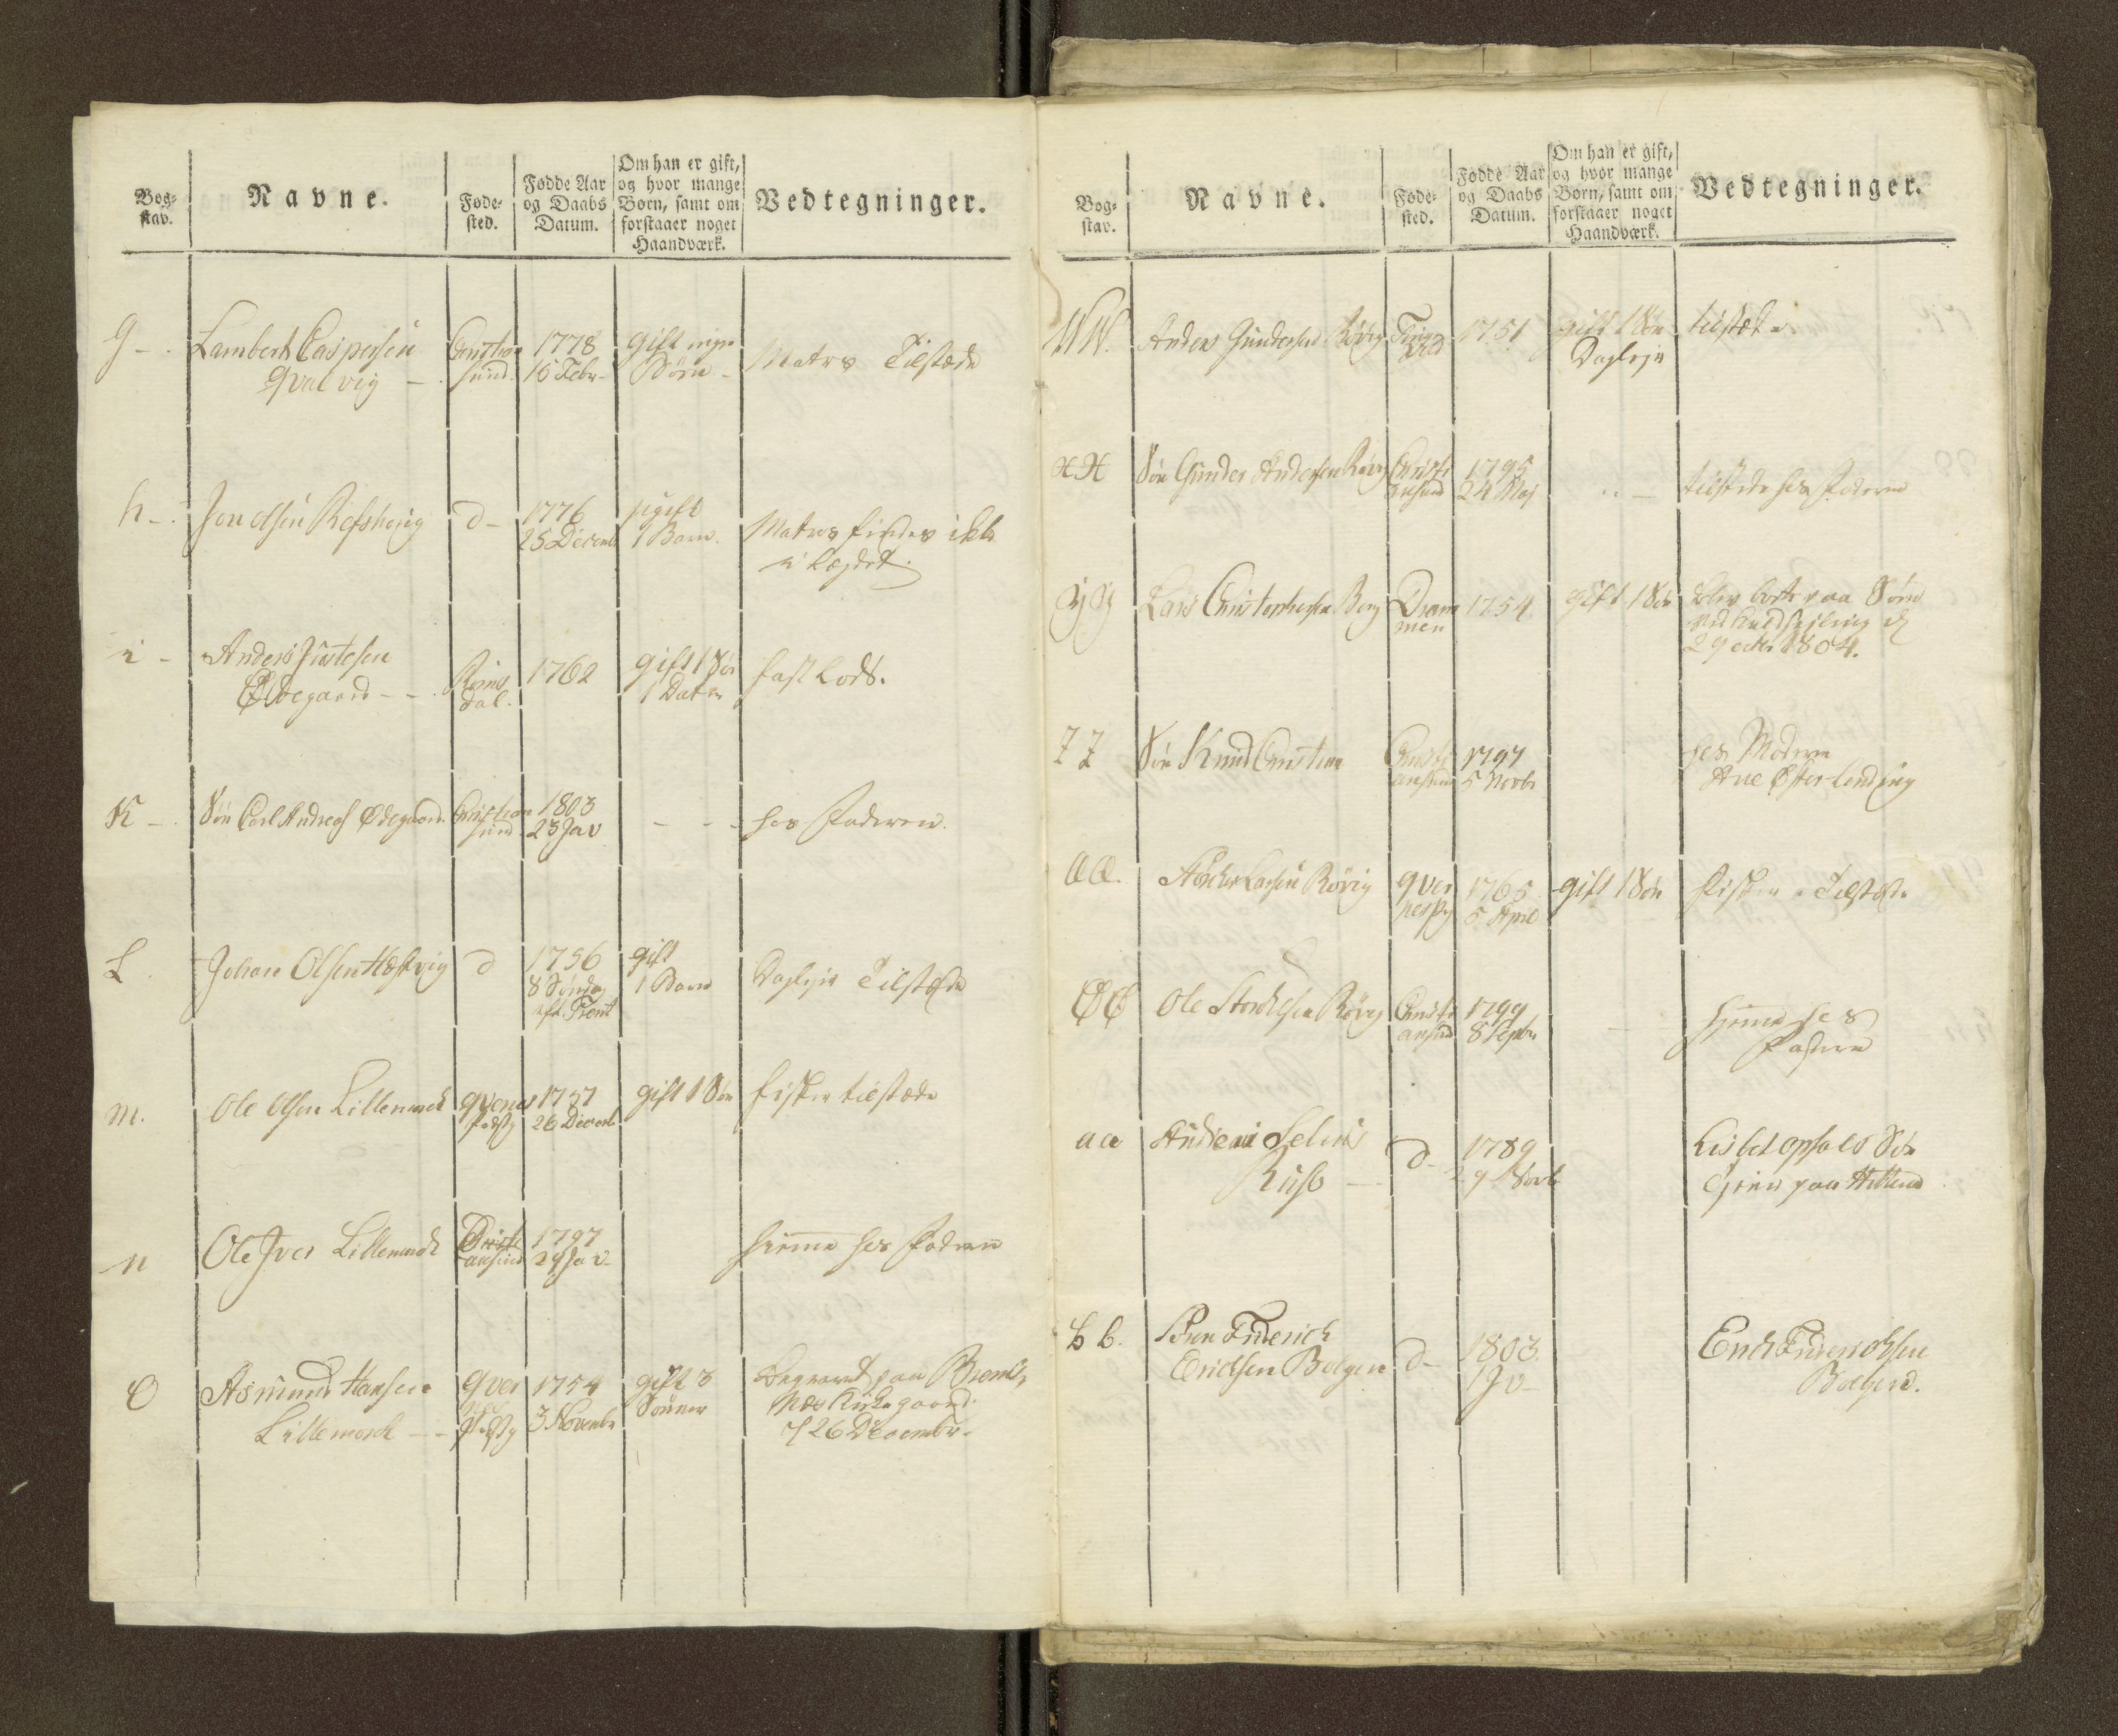 Bog-
stav.
Navne.
Føde-
sted.
Fødde Aar
og Daabs
Datum.
Om han er gift,
og hvor mange
Børn, samt om
forstaaer noget
Haandværk.
Vedtegninger.
G -
Lambert Caspersen
Qvalvig -
Christian
sund.
1778
16 Febr
gift ingen
Børn -
Matros Tilstæde
h -
Jon Olsen Refshoug
d -
1776
25 Decemb
ugift
1 Barn.
Matros findes ikke
i Lægdet.
i -
Anders Justesen
Ødegaard - -
Roms
dal.
1762
gift 1 Søn
1 Datter
fast Lods.
K -
Søn Carl Andreas Ødegaard
Christian
sund
1803
23 Jan
- -
hos Faderen.
L
Johan Olsen Hestvig
d
1756
8 Søndag
eft. Trenit
gift
1 Barn
Daglejer Tilstæde
m.
Ole Olsen Lillemork
Qvernes
Præstg
1757
26 Decemb
gift 1 Søn
fisker tilstæde
n
Ole Iver Lillemork
Christi
ansund
1797
29 Jan
hiemme hos Faderen
O
Asmund Hansen
Lillemork - -
Qver
nes
Præstg
1754
3 Novembr
gift 3
Sønner
Begravet paa Brems
Næs Kirkegaard
d 26 Decembr.
Bog-
stav.
Navne.
Føde-
sted.
Fødde Aar
og Daabs
Datum.
Om han er gift,
og hvor mange
Børn, samt om
forstaaer noget
Haandværk.
Vedtegninger.
WW.
Anders Gundersen Røvig
Ting
vold
1751
gift 1 Søn
Daglejer
tilstæde
XX
Søn Gunder Andersen Røvig
Christi
ansund
1795
24 Maj
tilstede hos Faderen
YY
Lars Christophersen Berg
Dram
men
1754
gift 1 Søn
blev borte paa Søen
29 octbr 1804.
ZZ
Søn Knud Christian
Christi
ansund
1797
5 Novbr
hos Moderen
Ane Østerlending
ÆÆ.
Larsen Røvig
Qver
nes Pg
1765
5 April
gift 1 Søn
fisker Tilstæde
ØØ
Ole Røvig
Christi
ansund
1799
8 Septr
-
hiemme hos
Faderen
aa
Selius
Kuso -
d -
1789
29 Novb
bb.
Søren Friderich
Erichsen Bolgen
d -
1803
1 Ja
Erich Friderichsen
Bolgen.